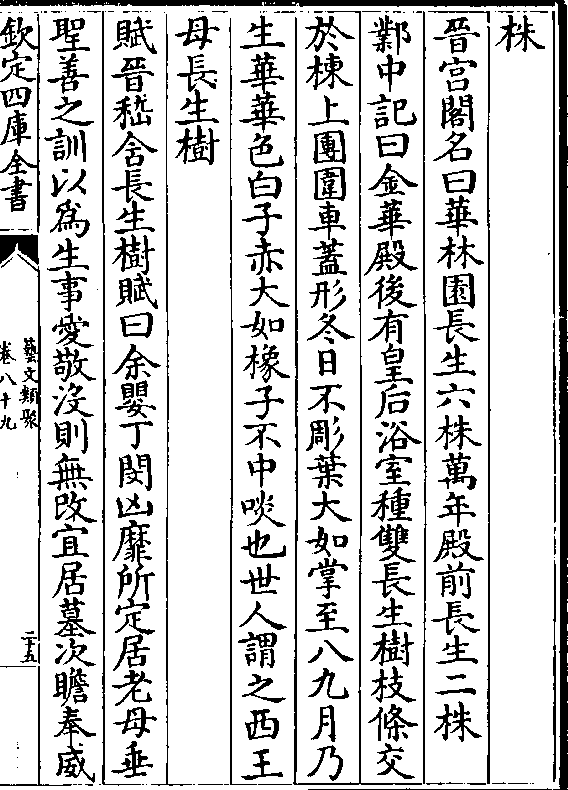 株
晉宮閣名曰華林園長生六株萬年殿前長生二株
鄴中記曰金華殿後有皇后浴室種雙長生樹枝條交
於棟上團圍車蓋形冬日不彫葉大如掌至八九月乃
生華華色白子赤大如橡子不中啖也世人謂之西王
母長生樹
賦晉嵇含長生樹賦曰余嬰丁閔凶靡所定居老母垂
聖善之訓以為生事愛敬沒則無改宜居墓次瞻奉威
欽定四庫全書
藝文類聚
卷八十九
二十五